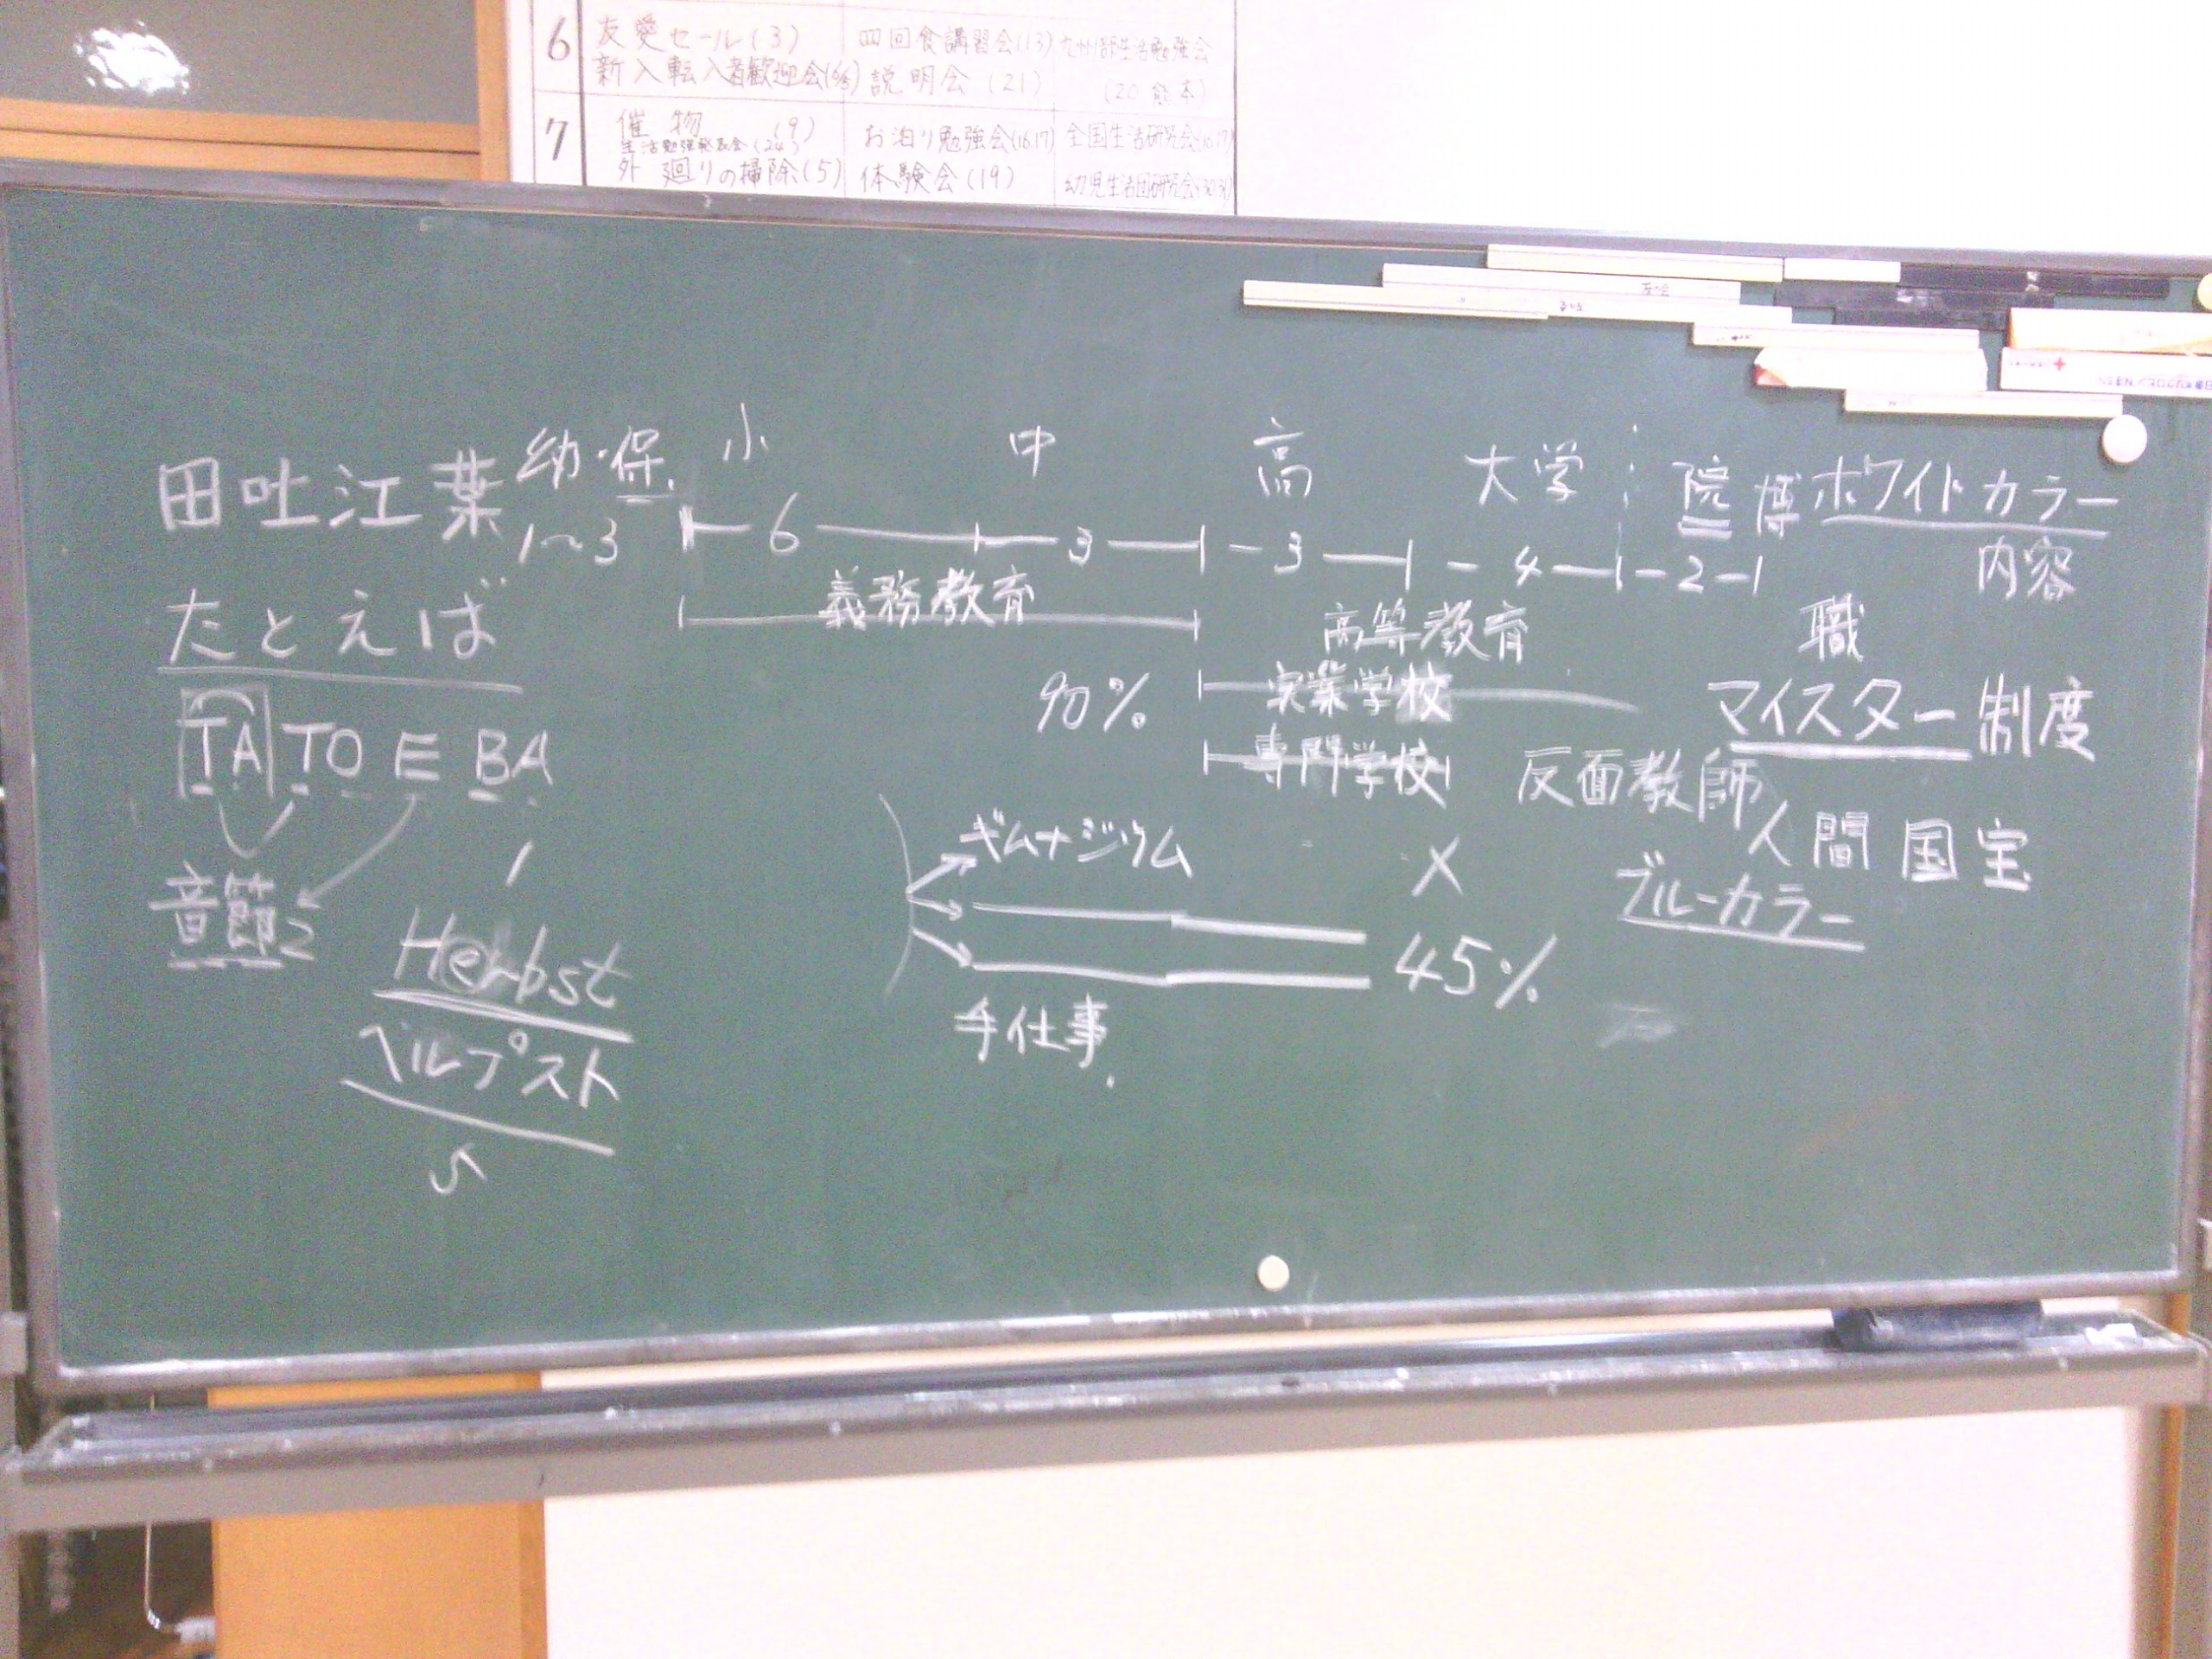 6 友愛セール(3) 四回食講習会(13) 九州部生活勉強会
新入転入者歓迎会 説明会(21) (20 熊本)
7 催物(9) お泊り勉強会(16.17) 全国生活研究会(16.17)
生活勉強発表会(24)
外廻りの掃除(5) 体験会(19) 幼児生活団研究会(30.31)
幼・保. 小 中 高 大学 院 博 ホワイトカラー
田吐江葉
1〜3 6 3 3 4 2 内容
たとえば 義務教育 高等教育 職
90% 実業学校 マイスター制度
TA TO E BA 専門学校 反面教師
人間国宝
ギムナジウム X ブルーカラー
音節2 1
Herbst 45%
ヘルプスト 手仕事.
5